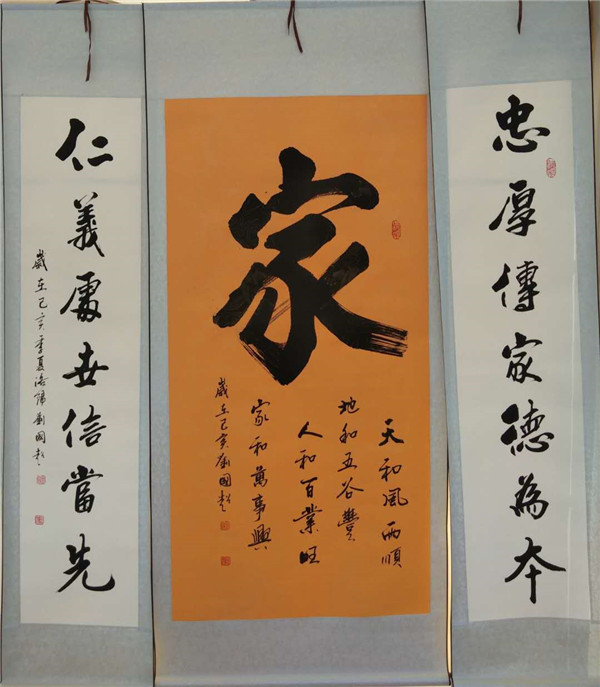 忠厚傳家德為本
家
天和風雨順
地和五谷豐
人和百業旺
家和萬事興
歲在己亥劉國
仁義處世信當先
歲在己亥季夏洛陽劉國